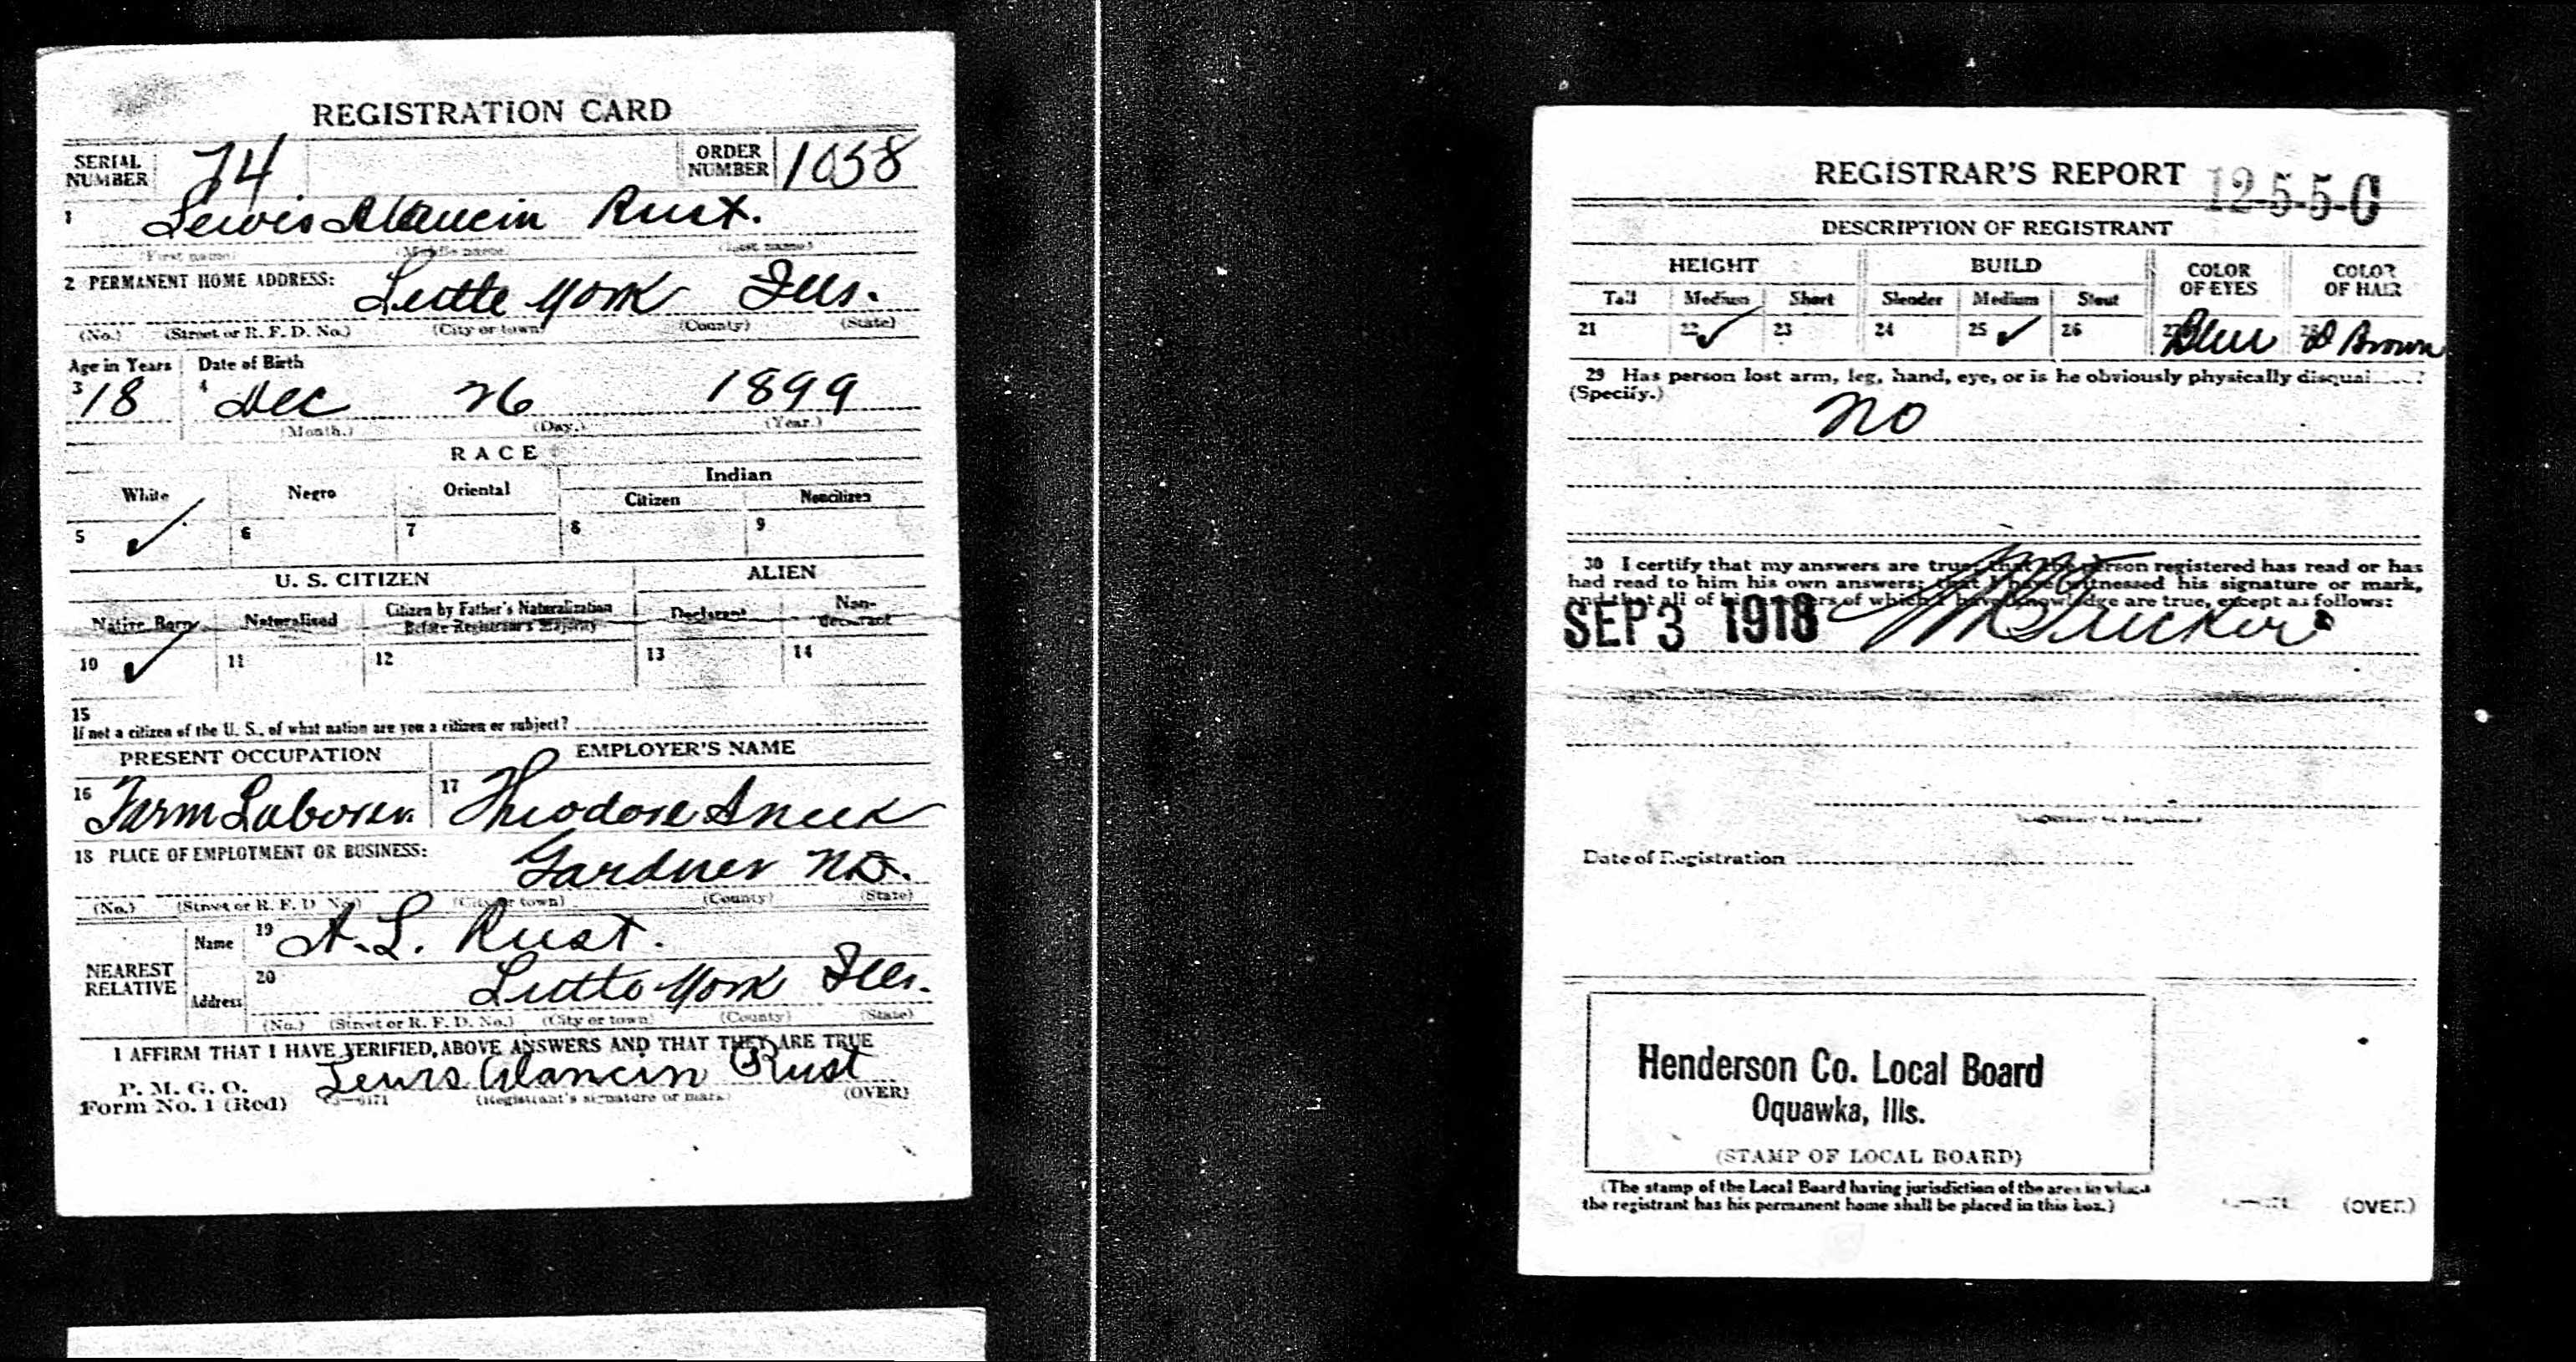 REGISTRATION CARD
SERIAL NUMBER 74 ORDER NUMBER 1058
1 Lewis Alancin Rust.
(First name) (Middle name) (Last name)
2 PERMANENT HOME ADDRESS: Little York Ills.
(No.) (Street or R. F. D. No.) (City or town) (County) (State)
Age in Years Date of Birth
3 18 4 Dec 26 1899
(Month.) (Day.) (Year.)
RACE
White Negro Oriental Indian
Citizen Noncitizen
5 ✓ 6 7 8 9
U. S. CITIZEN ALIEN
Native Born Naturalized Citizen by Father's Naturalization Before Registrant's Majority Declarant Non-declarant
10 ✓ 11 12 13 14
15
If not a citizen of the U. S., of what nation are you a citizen or subject?
PRESENT OCCUPATION EMPLOYER'S NAME
16 Farm Laborer 17 Theodore
18 PLACE OF EMPLOYMENT OR BUSINESS:
Gardner N.D.
(No.) (Street or R. F. D. No.) (City or town) (County) (State)
NEAREST RELATIVE
Name 19 A. L. Rust.
Address 20 Little York Ills.
(No.) (Street or R. F. D. No.) (City or town) (County) (State)
I AFFIRM THAT I HAVE VERIFIED ABOVE ANSWERS AND THAT THEY ARE TRUE
P. M. G. O.
Form No. 1 (Red) Lewis Alancin Rust
(Registrant's signature or mark) (OVER)
REGISTRAR'S REPORT 12-5-5-C
DESCRIPTION OF REGISTRANT
HEIGHT BUILD COLOR OF EYES COLOR OF HAIR
Tall Medium Short Slender Medium Stout
21 22 ✓ 23 24 25 ✓ 26 27 Blue 28 D Brown
29 Has person lost arm, leg, hand, eye, or is he obviously physically
(Specify.) No
30 I certify that my answers are true; that the person registered has read or has
had read to him his own answers; that I have witnessed his signature or mark,
and that all of his answers of which I have knowledge are true, except as follows:
SEP 3 1918
Date of Registration
Henderson Co. Local Board
Oquawka, Ills.
(STAMP OF LOCAL BOARD)
(The stamp of the Local Board having jurisdiction of the area in which
the registrant has his permanent home shall be placed in this box.)
(OVER)